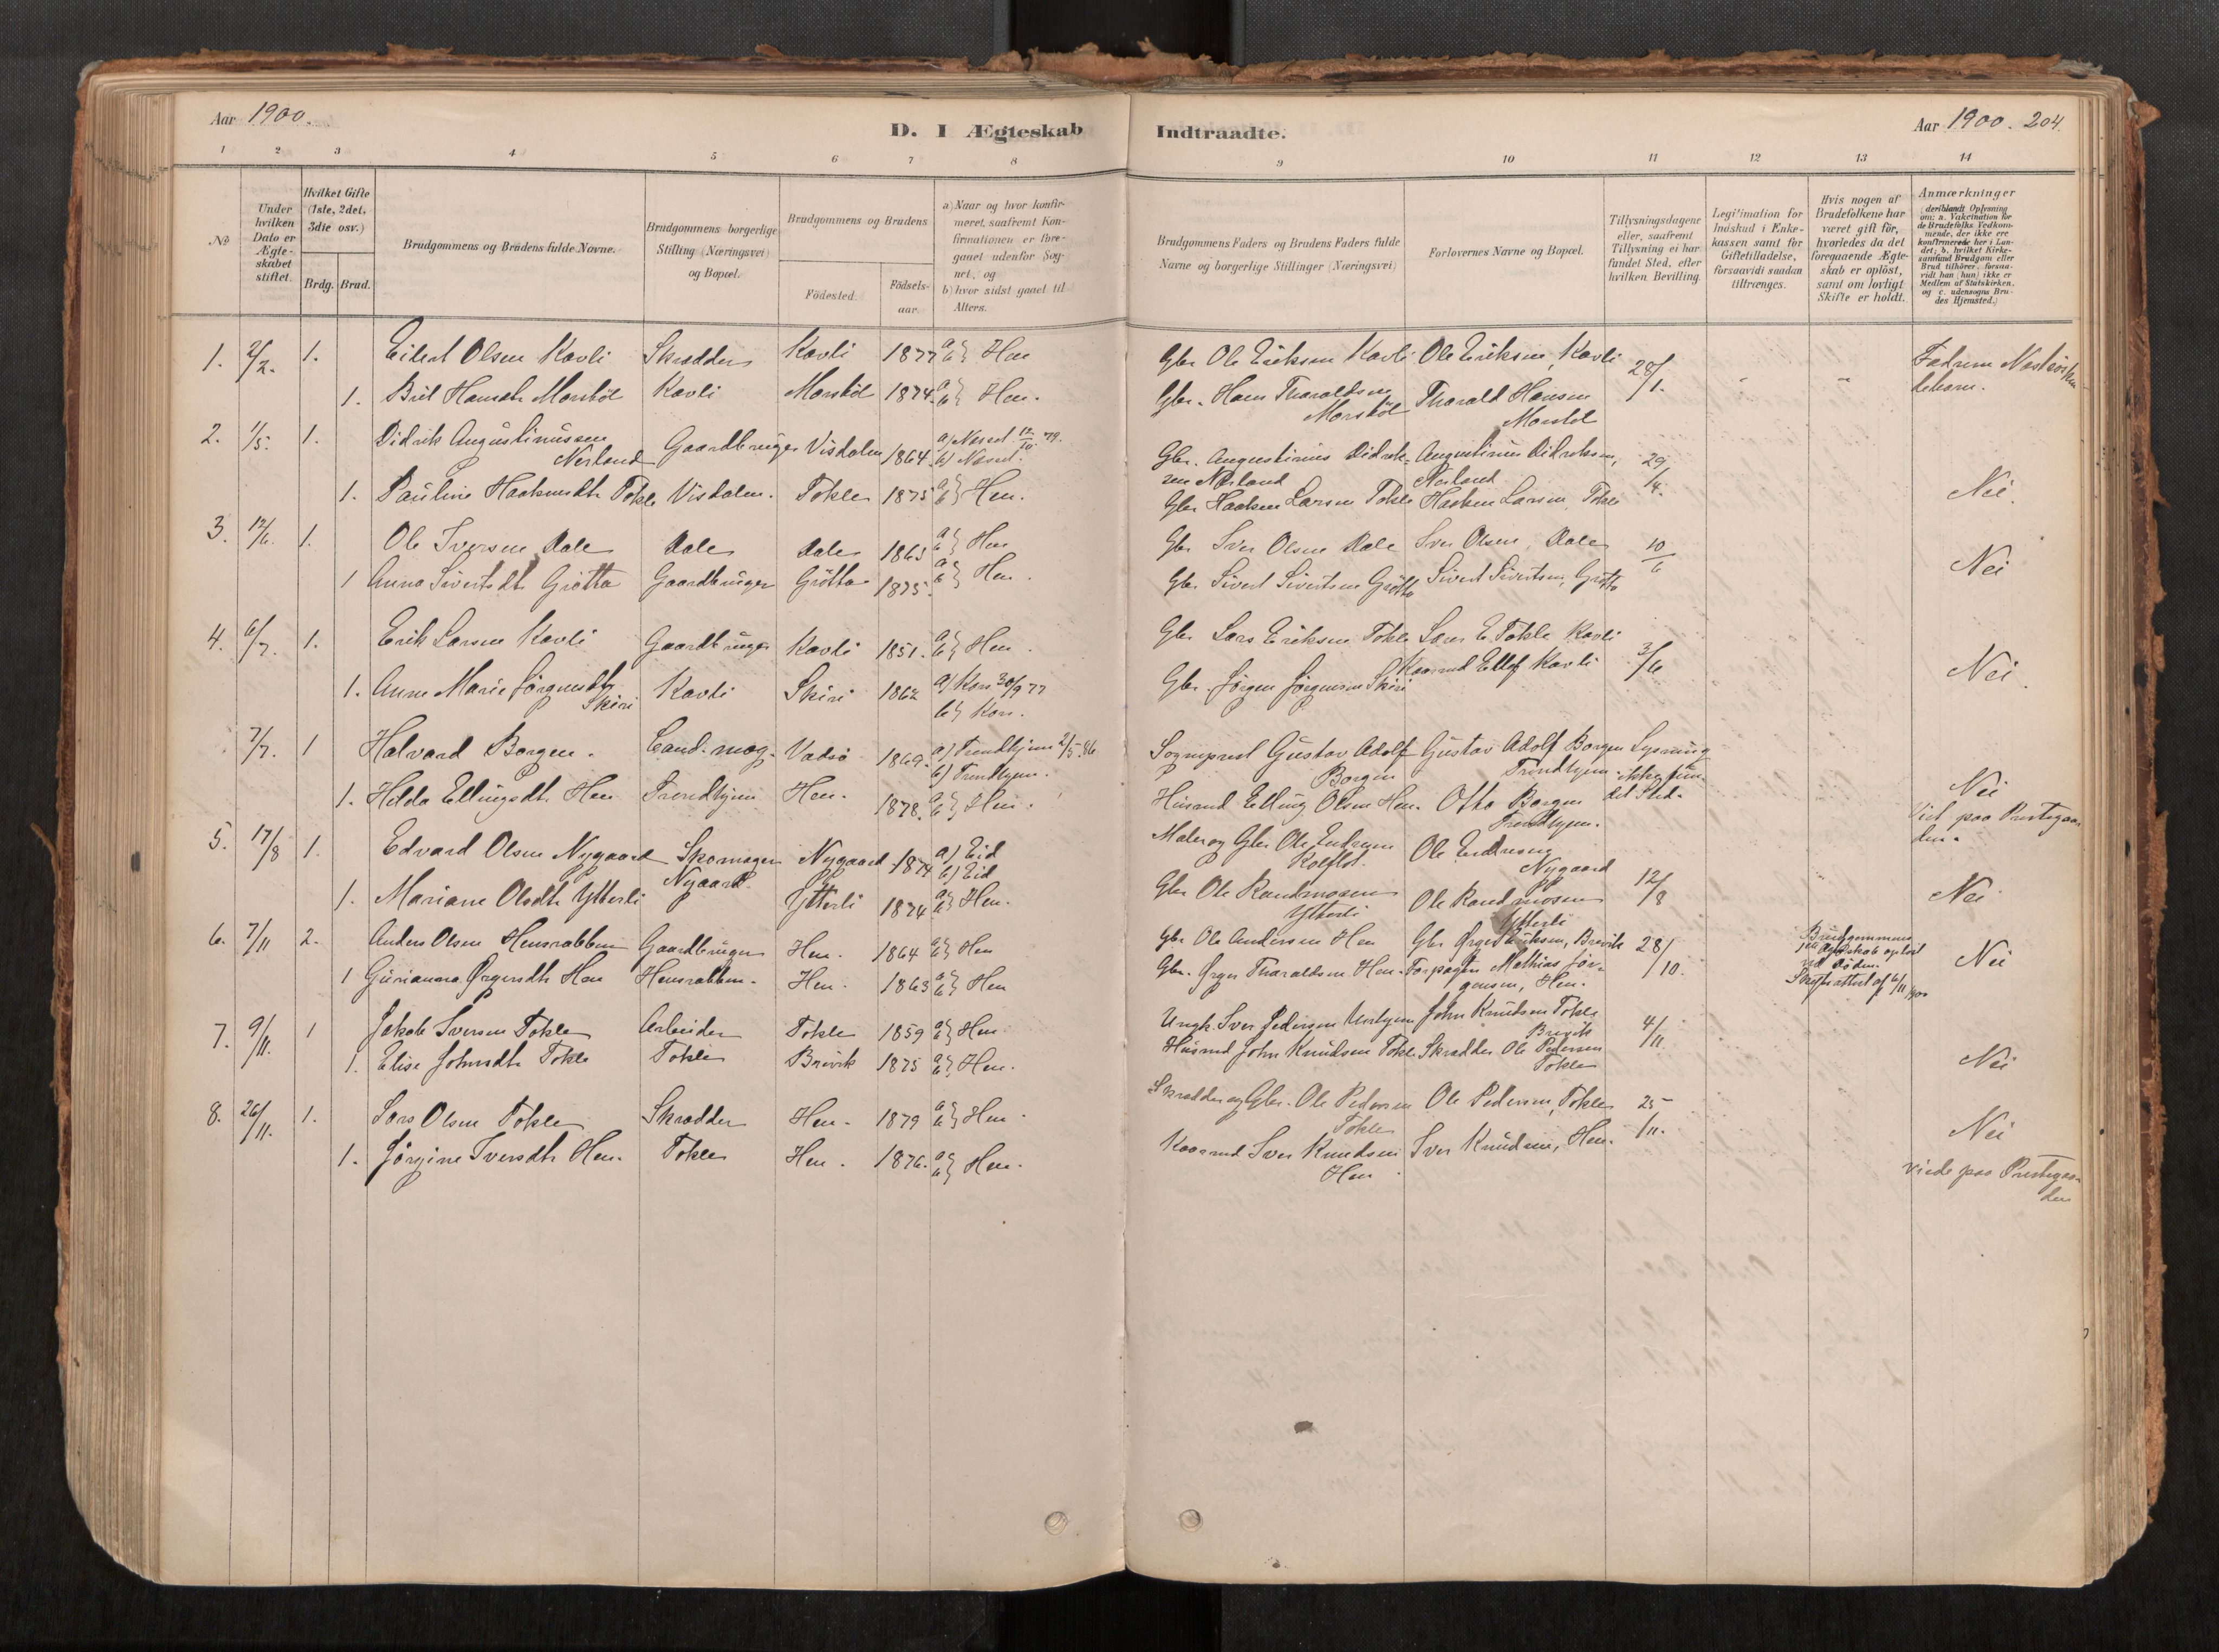 Aar 1900.
D. I Ægteskab
1 2 3 4 5 6 7 8
No
Under hvilken Dato er Ægteskabet stiftet.
Hvilket Gifte (1ste, 2det, 3die osv.)
Brdg. Brud.
Brudgommens og Brudens fulde Navne.
Brudgommens borgerlige Stilling (Næringsvei) og Bopæl.
Brudgommens og Brudens
Födested.
Födselsaar.
a) Naar og hvor konfirmeret, saafremt Konfirmationen er foregaaet udenfor Sognet, og
b) hvor sidst gaaet til Alters.
1. 2/2. 1. Eilert Olsen Kavli Skrædder Kavli 1877 a b} Hen
1. Brit Hansdtr Morstöl Kavli Morstöl 1874. a b} Hen.
2. 1/5. 1. Didrik Augustinussen
Nerland Gaardbruger Visdalen 1864. a) Nesset 12/10 79.
b) Nesset.
1. Pauline Haakensdtr Tokle Visdalen. Tokle 1875 a b} Hen.
3. 12/6. 1. Ole Iversen Dale Dale Dale 1863 a b} Hen
1 Anna Sivertsdtr Grötta Gaardbruger Grötta 1875. a b} Hen.
4. 6/7. 1. Erik Larsen Kavli Gaardbruger Kavli 1851. a b} Hen.
1. Anne Marie Jörgensdtr
Skiri Kavli Skiri 1862 a) Kors 30/9 77
b) Kors.
7/7. 1 Halvard Borgen. Cand. mag. Vadsö 1869. a) Trondhjem 2/5.86
b) Trondhjem.
1. Hilda Ellingsdtr Hen Trondhjem Hen. 1878. a b} Hen.
5. 17/8 1. Edvard Olsen Nygaard Skomager Nygaard 1874 a) Eid
b) Eid
1. Mariane Olsdtr Ytterli Nygaard Ytterli 1874. a b} Hen.
6. 7/11 2. Anders Olsen Hensrabben Gaardbruger Hen. 1864 a b} Hen
1 Gurianna Ørgersdtr Hen Hensrabben. Hen. 1863 a b} Hen
7. 9/11. 1 Jakob Iversen Tokle Arbeider Tokle 1859 a b} Hen.
1. Elise Johnsdtr Tokle Tokle Brevik 1875 a b} Hen.
8. 26/11. 1. Lars Olsen Tokle Skrædder Hen. 1879 a b} Hen.
1. Jörgine Iversdtr Hen. Tokle Hen. 1876. a b} Hen.
Indtraadte.
Aar 1900. 204.
9 10 11 12 13 14
Brudgommens Faders og Brudens Faders fulde Navne og borgerlige Stillinger (Næringsvei)
Forlovernes Navne og Bopæl.
Tillysningsdagene eller, saafremt Tillysning ei har fundet Sted, efter hvilken Bevilling.
Legitimation for Indskud i Enkekassen samt for Giftetilladelse, forsaavidt saadan tiltrænges.
Hvis nogen af Brudefolkene har været gift för, hvorledes da det foregaaende Ægteskab er oplöst, samt om lovligt Skifte er holdt.
Anmærkninger
(deriblandt Oplysning om: a. Vakcination for de Brudefolks Vedkommende, der ikke ere konfirmerede her i Landet; b. hvilket Kirkesamfund Brudgom eller Brud tilhörer, forsaavidt han (hun) ikke er Medlem af Statskirken, og c. udensogns Brudes Hjemsted.)
Gbr. Ole Eriksen Kavli Ole Eriksen, Kavli 28/1.
Gbr. Hans Tharaldsen
Morstöl Tharald Hansen
Morstöl
Gbr. Augustinus Didriksen Nerland Augustinus Didriksen, Nerland 29/4.
Gbr Haaken Larsen Tokle Haaken Larsen, Tokle Nei.
Gbr Iver Olsen Dale Iver Olsen, Dale 10/6
Gbr Sivert Sivertsen Grötta Sivert Sivertsen, Grötta Nei
Gbr Lars Eriksen Tokle Lars E. Tokle Kavli 3/6
Gbr. Jörgen Jörgensen Skiri Kaarmd Ellef Kavli Nei
Sogneprest Gustav Adolf
Borgen Gustav Adolf Borgen
Trondhjem Lysning
ikke fundet Sted.
Husmd Elling Olsen Hen. Otto Borgen
Trondhjem. Nei
Viet paa Prestegaarden.
Maler og Gbr Ole Endresen
Kolflot. Ole Endresen
Nygaard 12/8
Gbr Ole Rasmussen
Ytterli Ole Rasmussen
Ytterli Nei
Gbr Ole Andersen Hen Gbr Ørger Eriksen, Brevik 28/10.
Gbr. Ørger Tharaldsen Hen. Forpagter Mathias Jörgensen, Hen. Brudgommens
1ste Ægteskab oplöst
ved Döden.
Skifteattest af 6/11 1900 Nei
Ungk. Iver Pedersen John Knudsen Tokle
Brevik 4/11
Husmd John Knudsen Tokle Skrædder Ole Pedersen
Tokle Nei
Skrædder og Gbr. Ole Pedersen
Tokle Ole Pedersen, Tokle 25/11.
Kaarmd Iver Knudsen
Hen Iver Knudsen, Hen. Nei
viede paa Prestegaarden